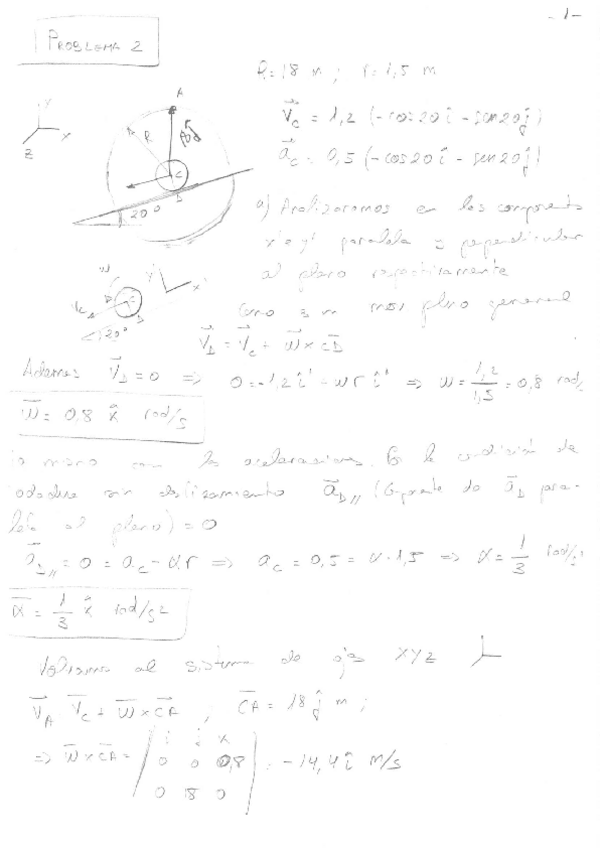 -1-
PROBLEMA 2
R=18 m ; r=1,5 m
V⃗c = 1,2 (-cos20 î - sen20 ĵ)
a⃗c = 0,5 (-cos20 î - sen20 ĵ)
Y
X
Z
A
R
C
D
20°
a) Analizaremos en las componentes
x' e y' paralela y perpendicular
al plano respectivamente
Como es un mov plano general
w
y'
x'
Vc
C
D
20°
V⃗D = V⃗c + w⃗ x CD
Ademas V⃗D = 0 ⇒ 0 = -1,2 î' + wr î' ⇒ w = 1,2/1,5 = 0,8 rad/s
w⃗ = 0,8 k̂ rad/s
mismo con las aceleraciones. En la condición de
rodadura sin deslizamiento a⃗D// (componente de a⃗D para-
lela al plano) = 0
a⃗D// = 0 = ac - αr ⇒ ac = 0,5 = α·1,5 ⇒ α = 1/3 rad/s²
α⃗ = 1/3 k̂ rad/s²
Volvamos al sistema de ejes XYZ
V⃗A = V⃗c + w⃗ x CA ; CA = 18 ĵ m ;
⇒ w⃗ x CA = | i j k
0 0 0,8
0 18 0 | = -14,4 î m/s